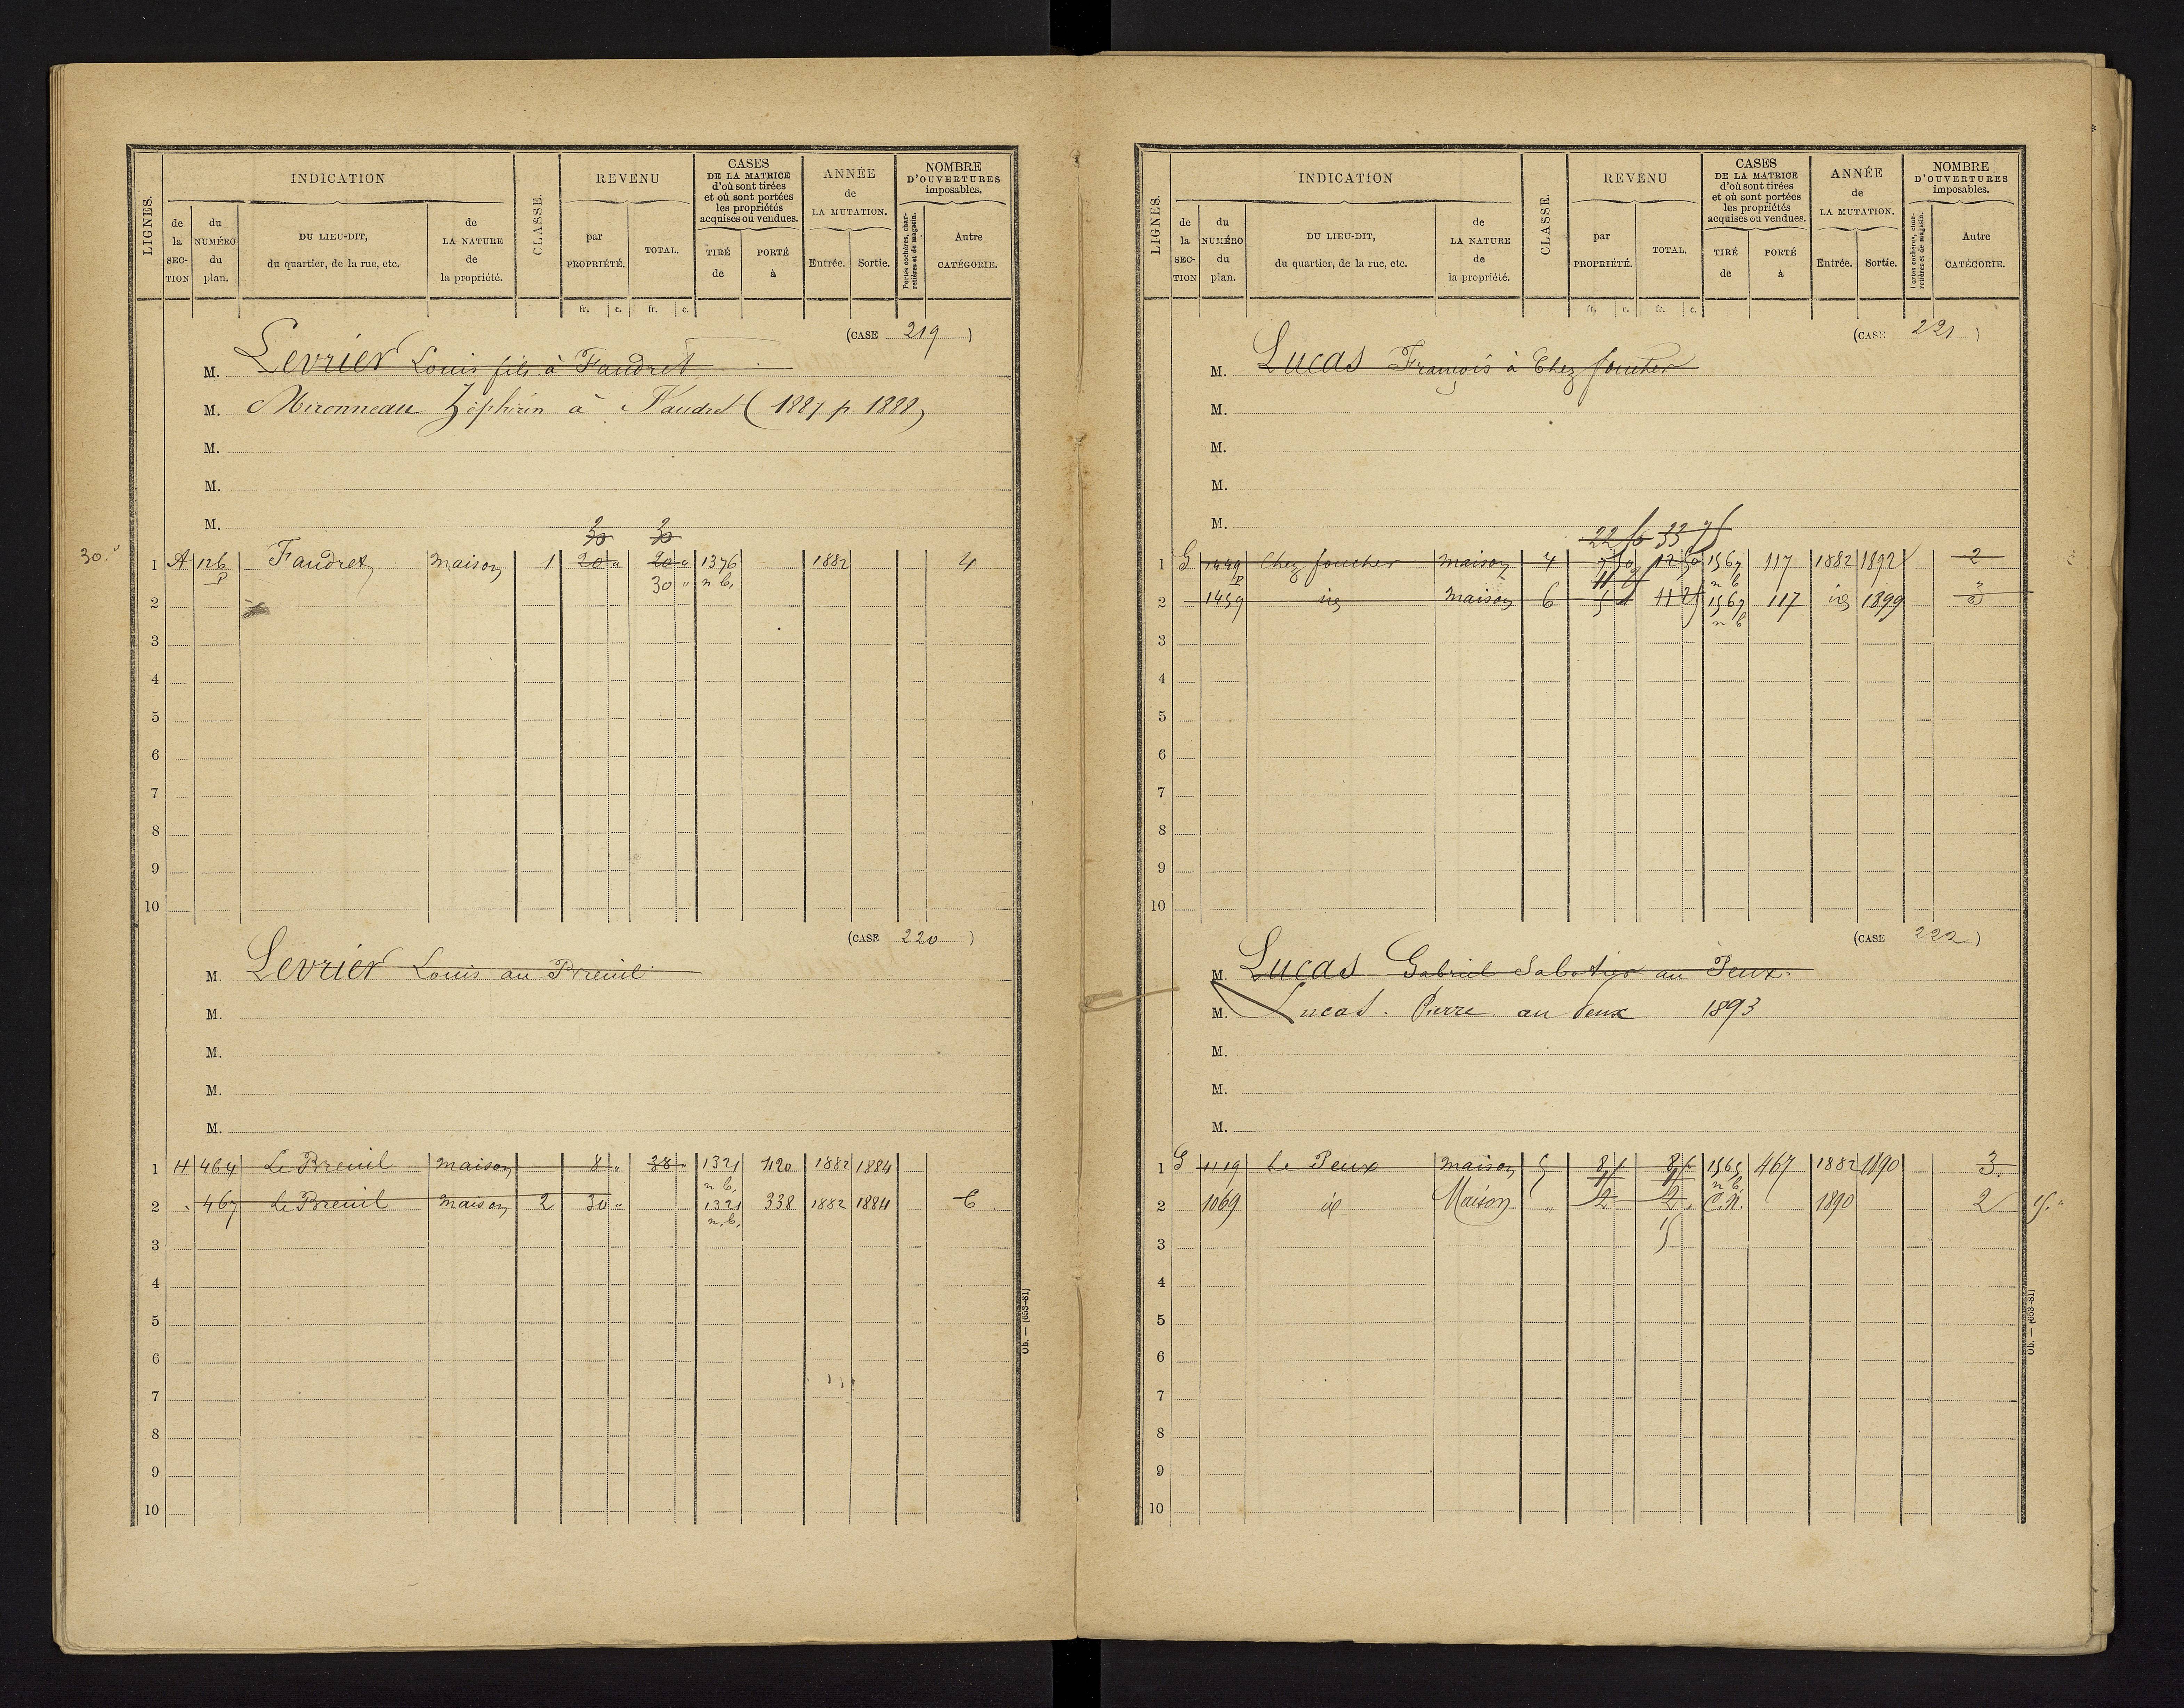 LIGNES.
INDICATION
de la SEC-TION
du NUMÉRO du plan.
DU LIEU-DIT, du quartier, de la rue, etc.
de LA NATURE de la propriété.
CLASSE.
REVENU
par PROPRIÉTÉ.
TOTAL.
CASES DE LA MATRICE d'où sont tirées et où sont portées les propriétés acquises ou vendues.
TIRÉ de
PORTÉ à
ANNÉE de LA MUTATION.
Entrée.
Sortie.
NOMBRE D'OUVERTURES imposables.
Portes cochères, charretières et de magasin.
Autre CATÉGORIE.
fr. c. fr. c.
(CASE 219)
M. Levrier Louis fils à Faudret
M. Mironneau Zéphirin à Faudret (1887 p. 1888)
M.
M.
M.
30 30
30. "
1 A 126 p Faudret maison 1 20 " 20 " 1376 1882 4
30 " n b,
2
3
4
5
6
7
8
9
10
(CASE 220)
M. Levrier Louis au Breuil
M.
M.
M.
M.
1 H 464 Le Breuil maison 8 " 38 " 1321 420 1882 1884
n b,
2 467 Le Breuil maison 2 30 " 1321 338 1882 1884 6
n. b,
3
4
5
6
7
8
9
10
Ob. — (653-81)
LIGNES.
INDICATION
de la SEC-TION
du NUMÉRO du plan.
DU LIEU-DIT, du quartier, de la rue, etc.
de LA NATURE de la propriété.
CLASSE.
REVENU
par PROPRIÉTÉ.
TOTAL.
CASES DE LA MATRICE d'où sont tirées et où sont portées les propriétés acquises ou vendues.
TIRÉ de
PORTÉ à
ANNÉE de LA MUTATION.
Entrée.
Sortie.
NOMBRE D'OUVERTURES imposables.
Portes cochères, charretières et de magasin.
Autre CATÉGORIE.
fr. c. fr. c.
(CASE 221)
M. Lucas François à Chez foucher
M.
M.
M.
M.
1 G 1449 p Chez foucher maison 4 7 50 12 50 1567 117 1882 1892 2
n b
2 1459 id maison 6 5 11 25 1567 117 id 1899 3
n b
3
4
5
6
7
8
9
10
(CASE 222)
M. Lucas Gabriel Sabotier au Peux.
M. Lucas. Pierre au Peux 1893
M.
M.
M.
1 G 1119 Le Peux maison 5 8 8 1565 467 1882 1890 3.
n b,
2 1069 id Maison " 2 2 C.N. 1890 2 15. "
15
3
4
5
6
7
8
9
10
Ob. — (653-81)